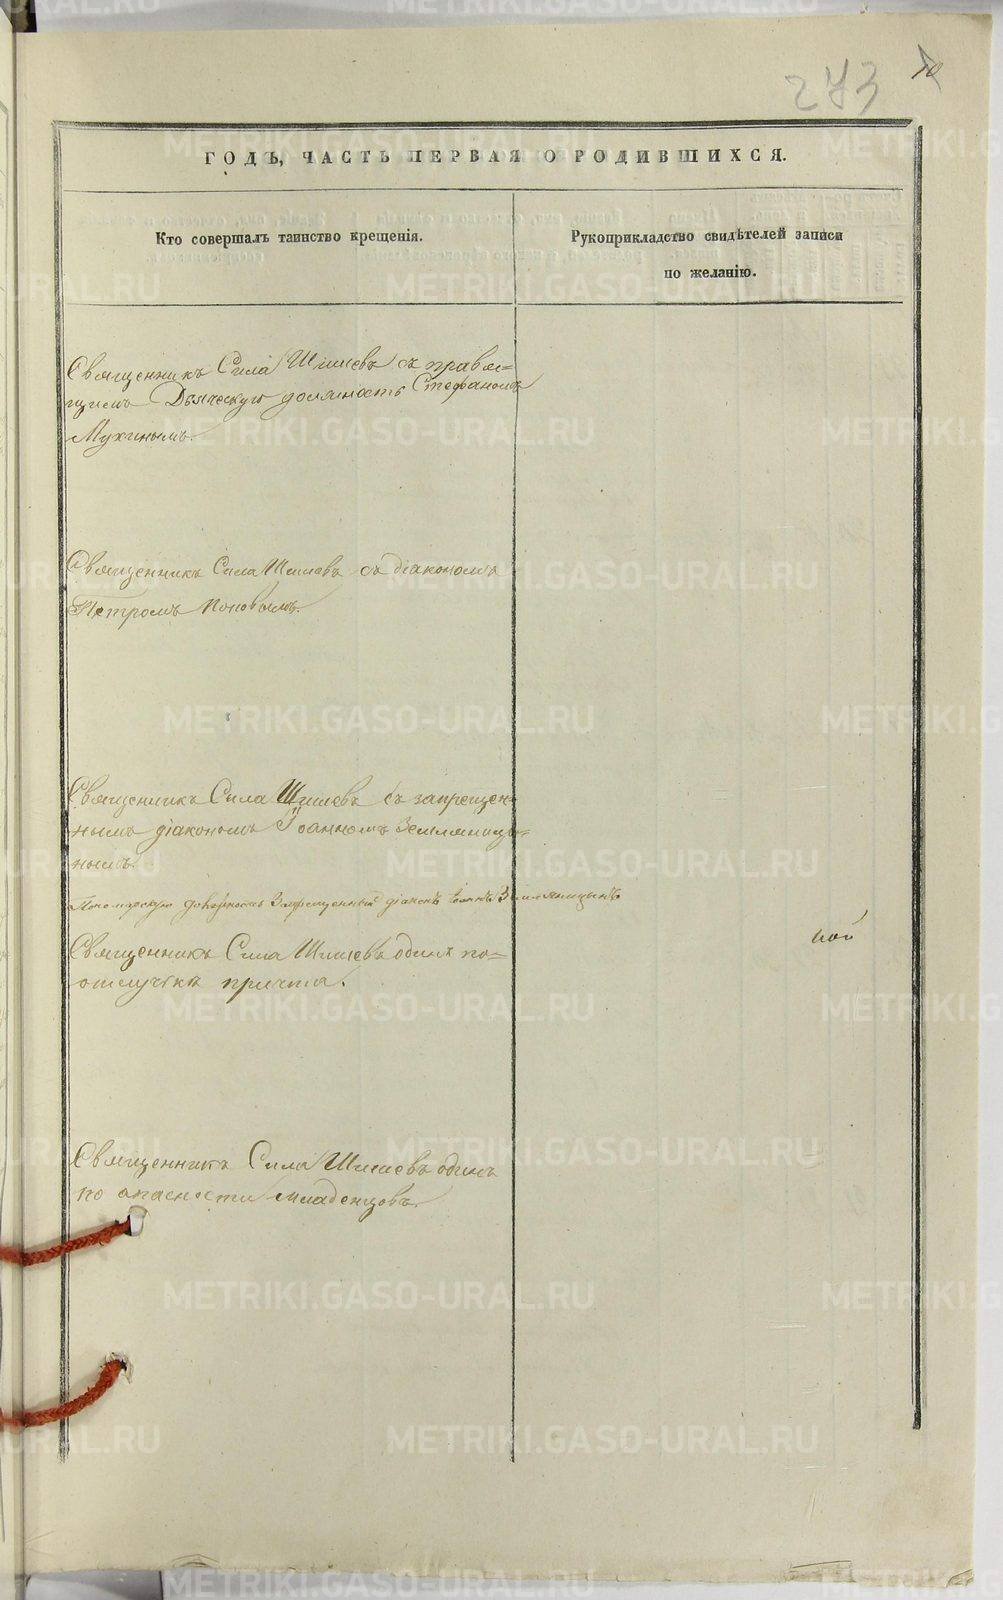 273
10
ГОДЪ, ЧАСТЬ ПЕРВАЯ О РОДИВШИХСЯ.
Кто совершалъ таинство крещенія.
Рукоприкладство свидѣтелей записи
по желанію.
Священникъ Сила Шишевъ съ правя=
щимъ Дьяческую должность Стефаномъ
Мухинымъ.
Священникъ Сила Шишевъ съ діакономъ
Петромъ Поповымъ.
Священникъ Сила Шишевъ съ запрещен-
нымъ діакономъ Іоанномъ Земляницы-
нымъ.
Пономарскую должность Запрещенный діаконъ Іоаннъ Земляницынъ
Священникъ Сила Шишевъ одинъ по=
отлучкѣ причта.
ной
Священникъ Сила Шишевъ одинъ
по опасности младенцовъ.
METRIKI.GASO-URAL.RU